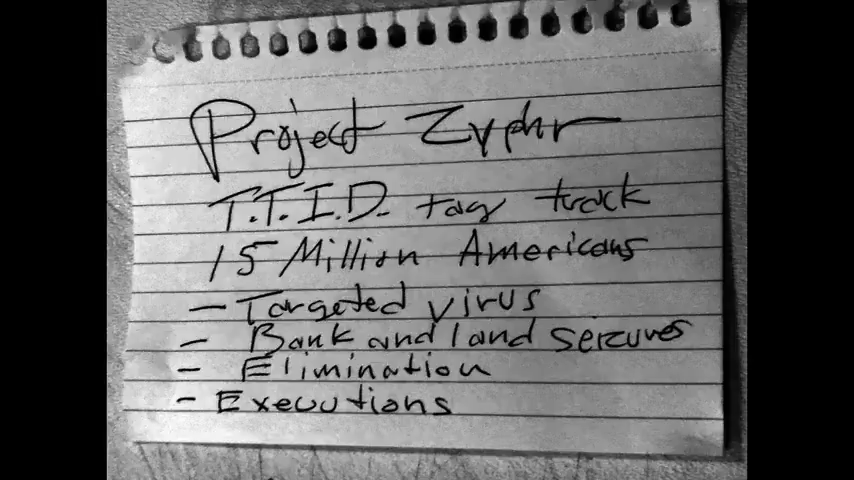 Project Zyphr
T.T.I.D. tag track
15 Million Americans
- Targeted virus
- Bank and land seizures
- Elimination
- Executions